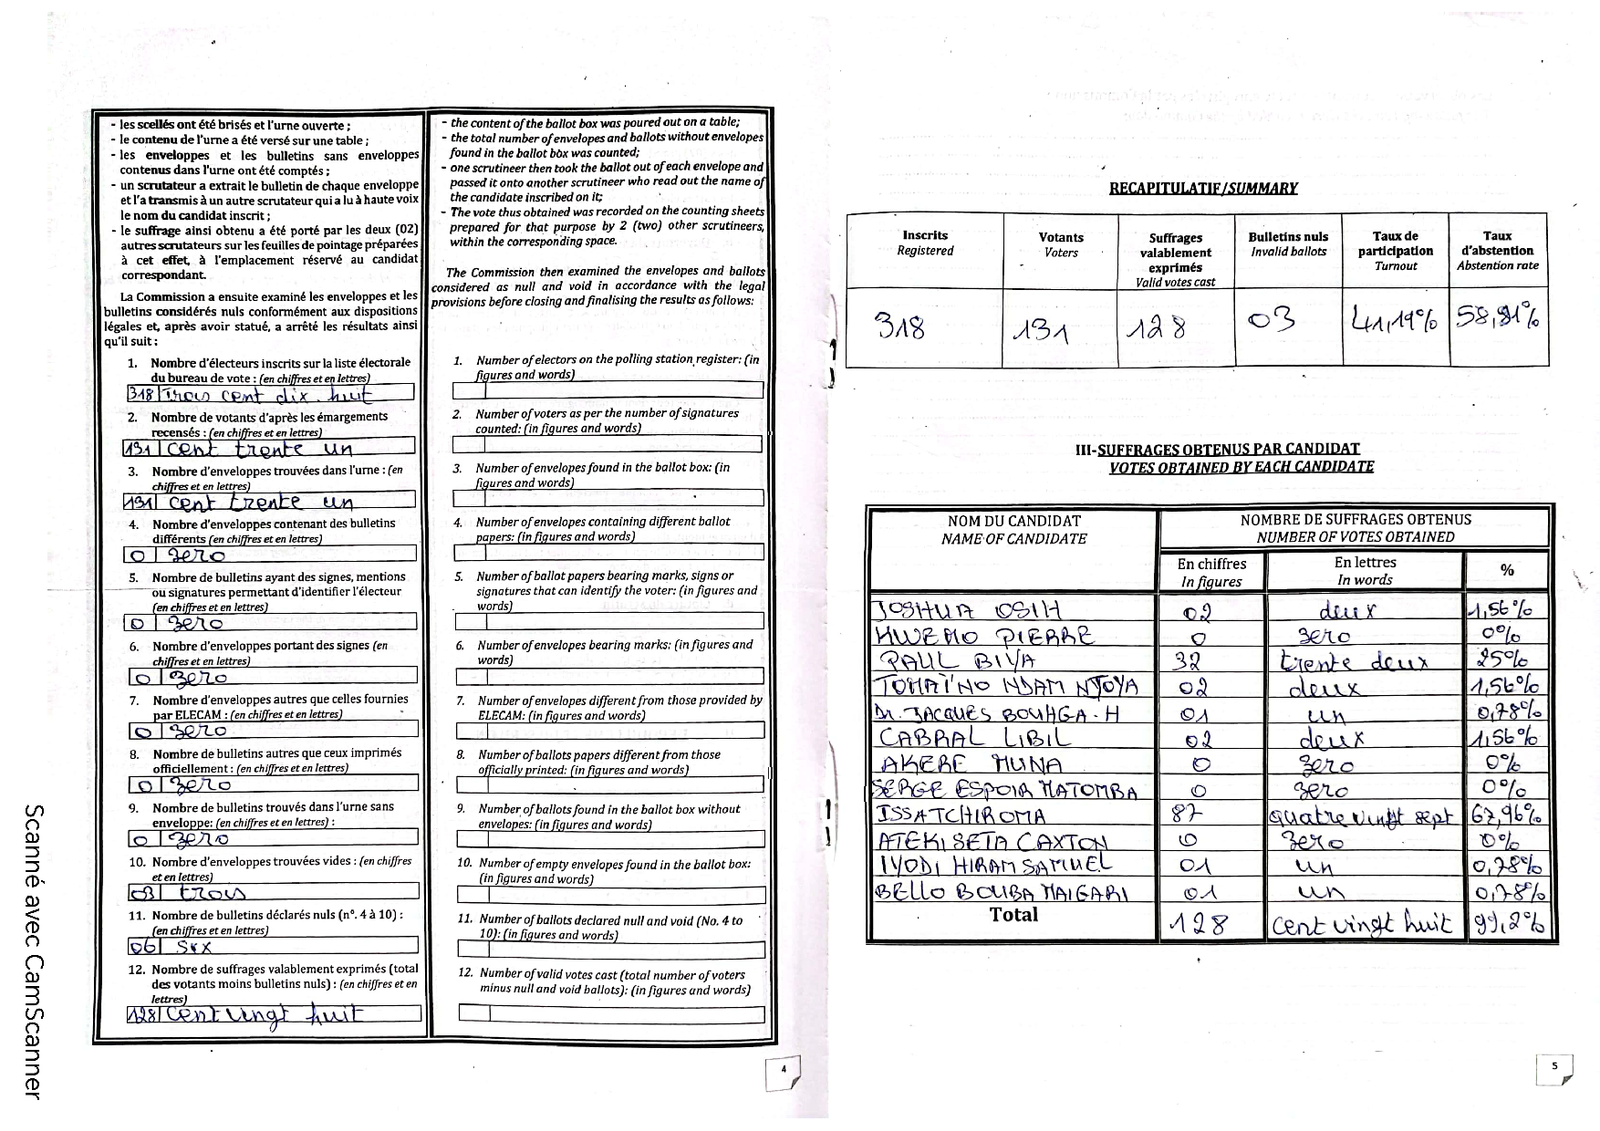 - les scellés ont été brisés et l'urne ouverte ;
- le contenu de l'urne a été versé sur une table ;
- les enveloppes et les bulletins sans enveloppes
contenus dans l'urne ont été comptés ;
- un scrutateur a extrait le bulletin de chaque enveloppe
et l'a transmis à un autre scrutateur qui a lu à haute voix
le nom du candidat inscrit ;
- le suffrage ainsi obtenu a été porté par les deux (02)
autres scrutateurs sur les feuilles de pointage préparées
à cet effet, à l'emplacement réservé au candidat
correspondant.
La Commission a ensuite examiné les enveloppes et les
bulletins considérés nuls conformément aux dispositions
légales et, après avoir statué, a arrêté les résultats ainsi
qu'il suit :
1. Nombre d'électeurs inscrits sur la liste électorale
du bureau de vote : (en chiffres et en lettres)
318 Trois cent dix huit
2. Nombre de votants d'après les émargements
recensés : (en chiffres et en lettres)
131 cent trente un
3. Nombre d'enveloppes trouvées dans l'urne : (en
chiffres et en lettres)
131 cent trente un
4. Nombre d'enveloppes contenant des bulletins
différents (en chiffres et en lettres)
0 zero
5. Nombre de bulletins ayant des signes, mentions
ou signatures permettant d'identifier l'électeur
(en chiffres et en lettres)
0 zero
6. Nombre d'enveloppes portant des signes (en
chiffres et en lettres)
0 zero
7. Nombre d'enveloppes autres que celles fournies
par ELECAM : (en chiffres et en lettres)
0 zero
8. Nombre de bulletins autres que ceux imprimés
officiellement : (en chiffres et en lettres)
0 zero
9. Nombre de bulletins trouvés dans l'urne sans
enveloppe: (en chiffres et en lettres) :
0 zero
10. Nombre d'enveloppes trouvées vides : (en chiffres
et en lettres)
03 trois
11. Nombre de bulletins déclarés nuls (n°. 4 à 10) :
(en chiffres et en lettres)
06 six
12. Nombre de suffrages valablement exprimés (total
des votants moins bulletins nuls) : (en chiffres et en
lettres)
128 cent vingt huit
- the content of the ballot box was poured out on a table;
- the total number of envelopes and ballots without envelopes
found in the ballot box was counted;
- one scrutineer then took the ballot out of each envelope and
passed it onto another scrutineer who read out the name of
the candidate inscribed on it;
- The vote thus obtained was recorded on the counting sheets
prepared for that purpose by 2 (two) other scrutineers,
within the corresponding space.
The Commission then examined the envelopes and ballots
considered as null and void in accordance with the legal
provisions before closing and finalising the results as follows:
1. Number of electors on the polling station register: (in
figures and words)
2. Number of voters as per the number of signatures
counted: (in figures and words)
3. Number of envelopes found in the ballot box: (in
figures and words)
4. Number of envelopes containing different ballot
papers: (in figures and words)
5. Number of ballot papers bearing marks, signs or
signatures that can identify the voter: (in figures and
words)
6. Number of envelopes bearing marks: (in figures and
words)
7. Number of envelopes different from those provided by
ELECAM: (in figures and words)
8. Number of ballots papers different from those
officially printed: (in figures and words)
9. Number of ballots found in the ballot box without
envelopes: (in figures and words)
10. Number of empty envelopes found in the ballot box:
(in figures and words)
11. Number of ballots declared null and void (No. 4 to
10): (in figures and words)
12. Number of valid votes cast (total number of voters
minus null and void ballots): (in figures and words)
4
RECAPITULATIF/SUMMARY
Inscrits Registered Votants Voters Suffrages valablement exprimés Valid votes cast Bulletins nuls Invalid ballots Taux de participation Turnout Taux d'abstention Abstention rate
318 131 128 03 41,19% 58,81%
III-SUFFRAGES OBTENUS PAR CANDIDAT
VOTES OBTAINED BY EACH CANDIDATE
NOM DU CANDIDAT NOMBRE DE SUFFRAGES OBTENUS
NAME OF CANDIDATE NUMBER OF VOTES OBTAINED
En chiffres En lettres %
In figures In words
JOSHUA OSIH 02 deux 1,56%
KWEMO PIERRE 0 zero 0%
PAUL BIYA 32 trente deux 25%
TOMAÏNO NDAM NJOYA 02 deux 1,56%
Dr. JACQUES BOUHGA-H 01 un 0,78%
CABRAL LIBIL 02 deux 1,56%
AKERE MUNA 0 zero 0%
SERGE ESPOIR MATOMBA 0 zero 0%
ISSA TCHIROMA 87 quatre vingt sept 67,96%
ATEKI SETA CAXTON 0 zero 0%
IYODI HIRAM SAMUEL 01 un 0,78%
BELLO BOUBA MAIGARI 01 un 0,78%
Total 128 cent vingt huit 99,2%
5
Scanné avec CamScanner